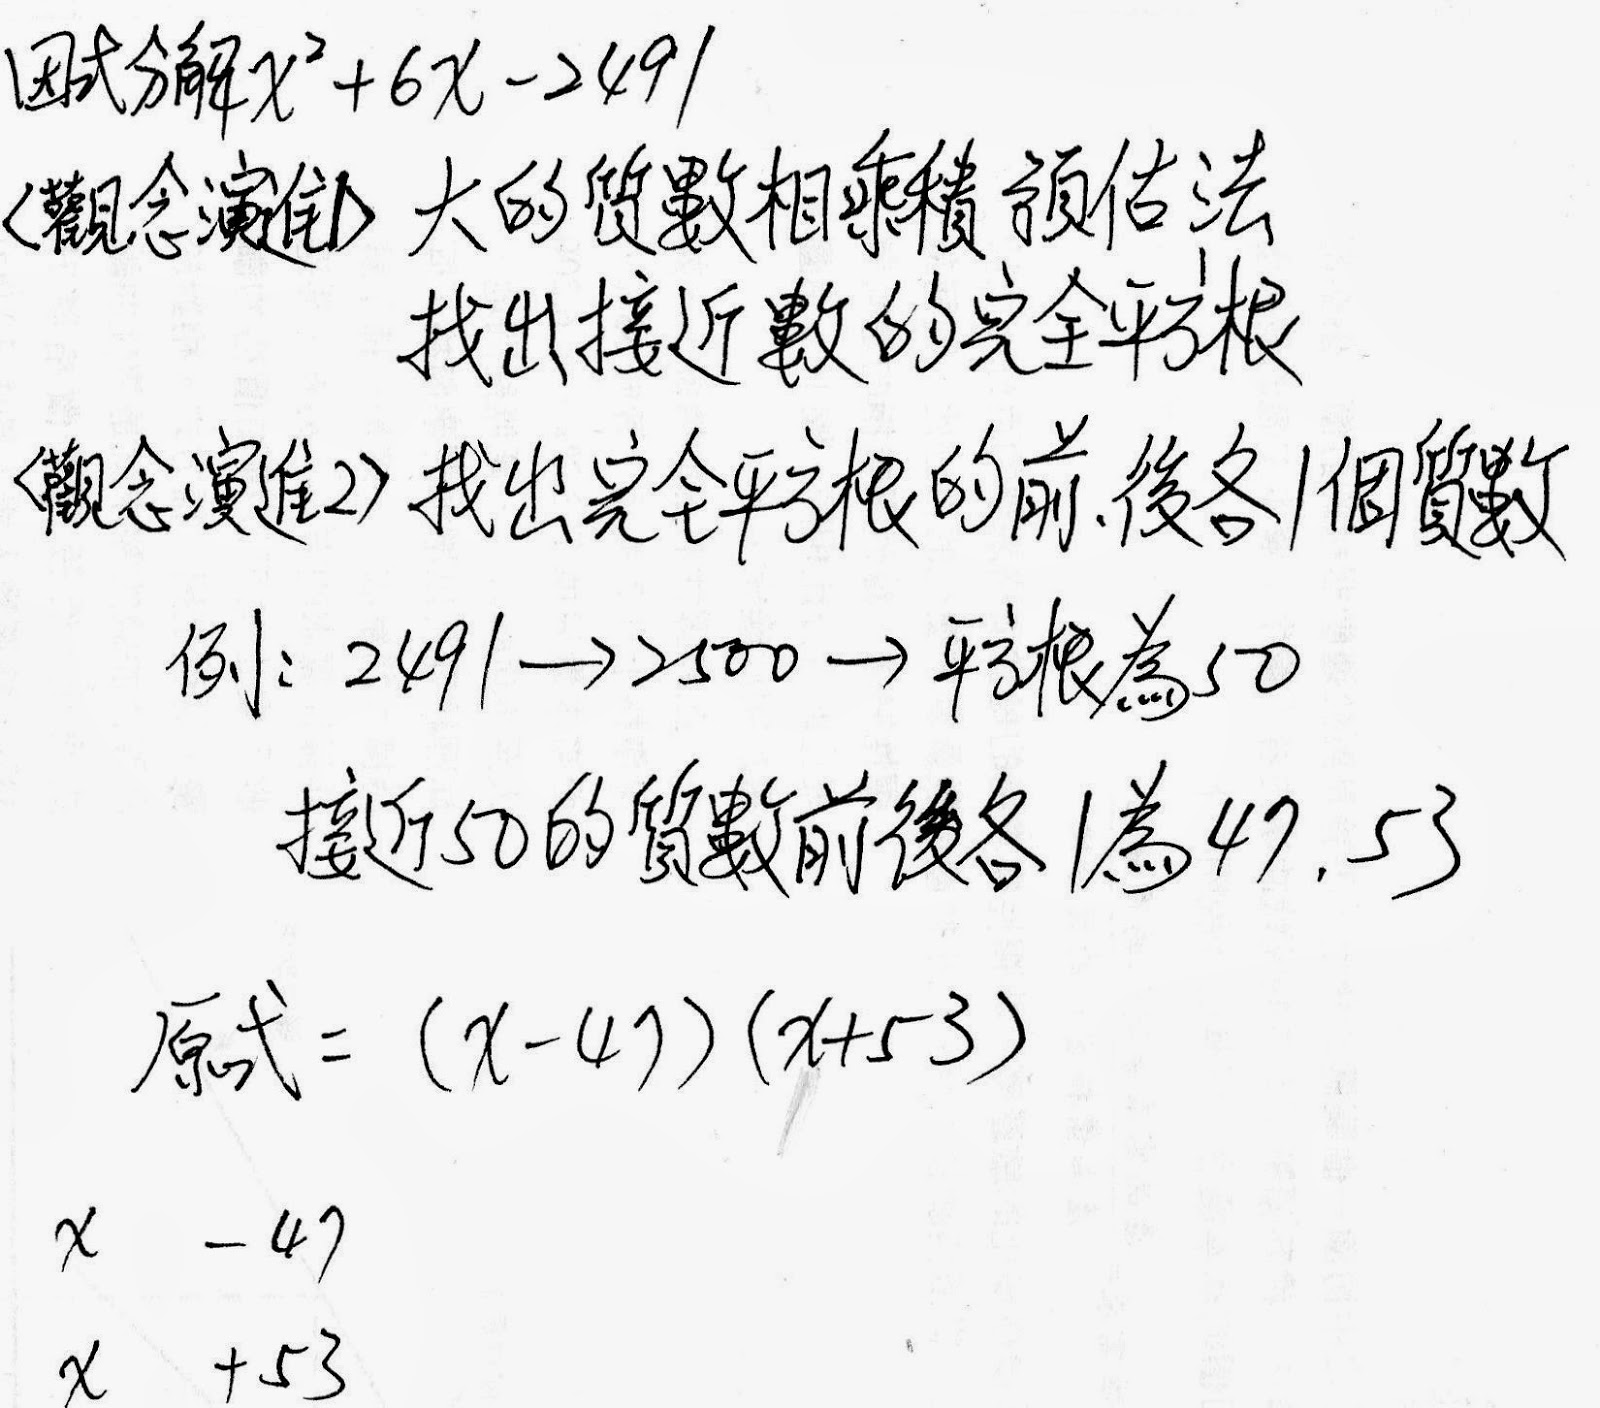 因式分解x²+6x-2491
<觀念演進1> 大的質數相乘積預估法
找出接近數的完全平方根
<觀念演進2> 找出完全平方根的前、後各1個質數
例: 2491→2500→平方根為50
接近50的質數前後各1為47、53
原式=(x-47)(x+53)
x -47
x +53